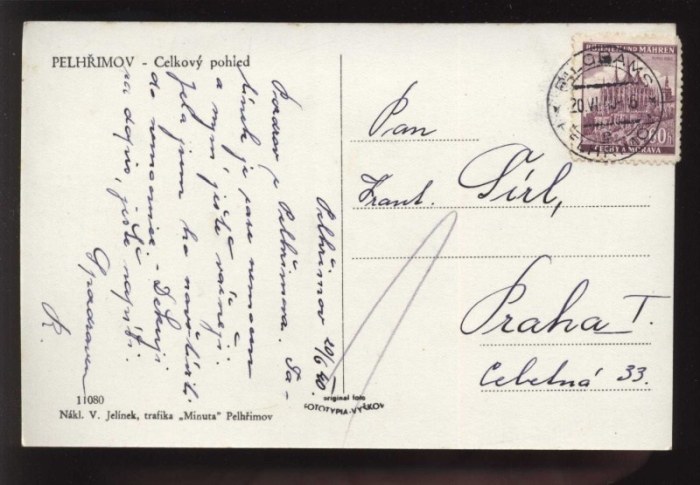 PELHŘIMOV - Celkový pohled
Pelhřimov 20/6 40.
Pozdrav z Pelhřimova. Ta-
tínek je zase nemocen
a nyní ještě
Jela jsem ho navštívit
do nemocnice - Děkuji
za dopis, ještě napíši.
S pozdravem
11080
Nákl. V. Jelínek, trafika „Minuta" Pelhřimov
original foto
FOTOTYPIA-VYŠKOV
BÖHMEN UND MÄHREN
20.VI.40
60
ČECHY A MORAVA
Pan
Frant. Širl,
Praha I.
Celetná 33.